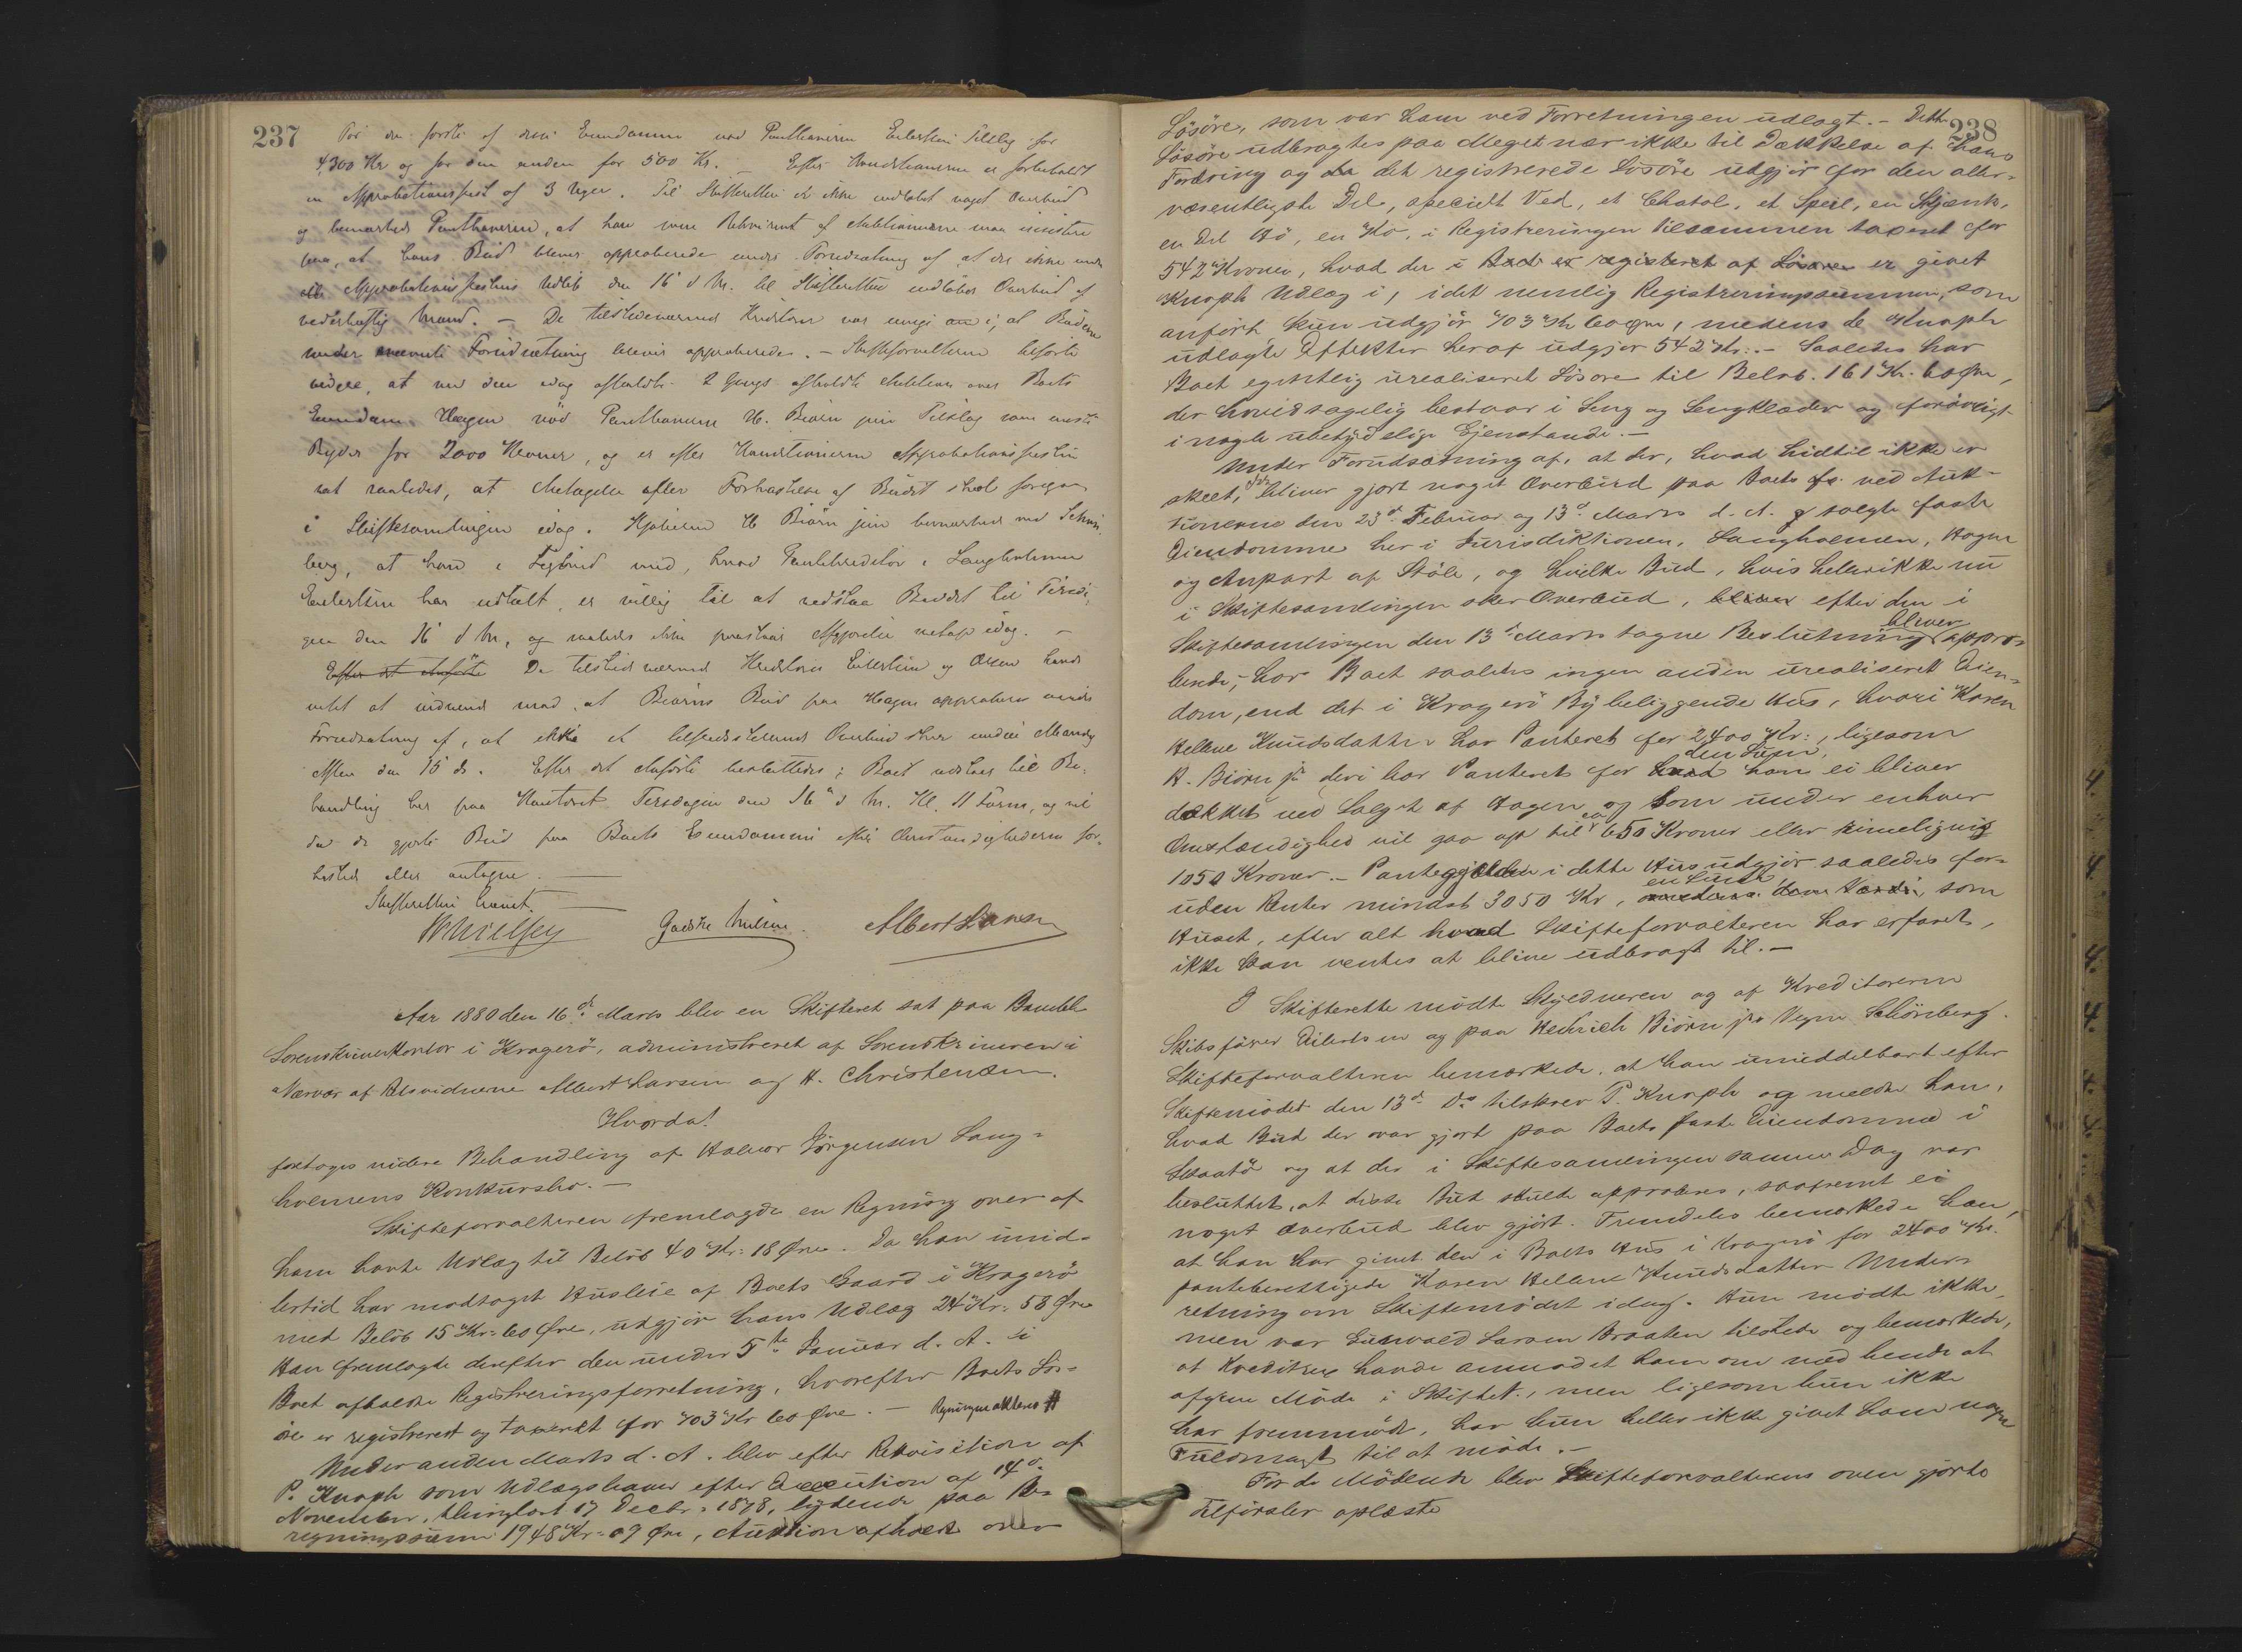 237
For den første af disse Eiendomme nød Panthaveren Eilertsen Tilslag for
4,300 Kr og for den anden for 500 Kr. Efter Konditionerne er forbeholdt
en Approbationsfrist af 3 Uger. Til Skifteretten er ikke indløbet noget Overbud
og bemærkede Panthaveren, at han som Rekvirent af Auktionerne maa insistere
paa, at hans Bud bliver approberede under Forudsætning af at der ikke inden
Approbationsfristens Udløb den 16 d M. til Skifteretten indløber Overbud af
vederheftig Mand. – De tilstedeværende Kreditorer var enige i, at Budene
under nævnte Forudsætning blevet approberede. – Skifteforvalteren tilførte
videre, at ved den idag afholdte 2 Gangs afholdte Auktion over Boets
Eiendom Hagen nød Panthaveren H. Biørn jun Tilslag som meste
Byder for 2000 Kroner, og er efter Konditionerne Approbationsfristen
sat saaledes, at Antagelse eller Forkastelse af Budet skal foregaa
i Skiftesamlingen idag. Kjøberen H Biørn jun bemærkede ved Schøn-
berg, at han i Lighed med, hvad Pantekreditor i Langholmen
Eilertsen har udtalt, er villig til at vedstaa Budet til Tirsda-
gen den 16 d M., og saaledes ikke paastaar Afgjørelse netop idag. –
Efter det Anførte De tilstedeværende Kreditorer Eilertsen og Olsen havde
intet at indvende mod at Biørns Bud paa Hagen approberes under
Forudsætning af, at ikke et tilfredsstillende Overbud sker inden Mandag
Aften den 15 ds. Efter det Anførte besluttedes: Boet udstaar til Be-
handling her paa Kontoret Tirsdagen den 16 d M. Kl. 11 Form, og vil
da de gjorte Bud paa Boets Eiendomme efter Omstændighederne for-
kastes eller antagne. –
Skifteretten hævet. –
Albert Larsen
Aar 1880 den 16d: Marts blev en Skifteret sat paa Bamble
Sorenskriverkontor i Kragerø, administreret af Sorenskriveren i
Nærvær af Retsvidnerne Albert Larsen og H. Christensen.
Hvorda!
foretoges videre Behandling af Halvor Jørgensen Lang-
holmens Konkursbo. –
Skifteforvalteren fremlagde en Regning over af
ham havte Udlæg til Beløb 40 Kr: 18 Øre. Da han imid-
lertid har modtaget Husleie af Boets Gaard i Kragerø
med Beløb 15 Kr: 60 Øre, udgjør hans Udlæg 24 Kr: 58 Øre
Han fremlagte derefter den under 5te Januar d. A. i
Boet afholdte Registreringsforretning, hvorefter Boets Løs-
øre er registreret og taxeret for 703 Kr 60 Øre. –
Under anden Marts d. A. blev efter Rekvisition af
P. Knaph som Udlægshaver efter Execution af 14d
November, thinglæst 17 Decbr: 1878, lydende paa Be-
regningssum 1948 Kr: 09 Øre, Auktion afholdt over
238
Løsøre, som var ham ved Forretningen udlagt. – Dette
Løsøre udbragtes paa Meget nær ikke til Dækkelse af hans
Fordring og da det registrerede Løsøre udgjør for den aller-
væsentligste Del, specielt Ved, et Chatol, et Speil, en Skjænk,
en Del Hø, en Ko, i Registreringen tilsammen taxeret for
542 Kroner, hvad der i Boet er registeret af Løsøre er givet
Knaph Udlæg i, idet nemlig Registreringssummen, som
anført kun udgjør 703 Kr 60 Øre, medens de Knaph
udlagte Effekter heraf udgjør 542 Kr:. – Saaledes har
Boet egentlig urealiseret Løsøre til Beløb 161 Kr. 60 Øre,
der hovedsagelig bestaar i Seng og Sengklæder og forøvrigt
i nogle ubetydelige Gjenstande. –
Under Forudsætning af, at der, hvad hidtil ikke er
skeet, bliver gjort noget Overbud paa Boets ved Auk-
tionerne den 23d Februar og 13d Marts d. A. solgte faste
Eiendomme her i Jurisdiktionen, Langholmen, Hagen
og Anpart af Støle, og hvilke Bud, hvis heller ikke nu
i Skiftesamlingen sker Overbud, bliver efter den i
Skiftesamlingen den 13d Marts tagne Beslutning bliver appro-
berede, har Boet saaledes ingen anden urealiseret Eien-
dom, end det i Kragerø By beliggende Hus, hvori Karen
Hellene Knudsdatter har Panteret for 2,400 Kr:, ligesom
H. Biørn jr deri har Panteret for hvad den Sum, han ei bliver
dækket ved Salget af Hagen og som under enhver
Omstændighed vil gaa op til ca 650 Kroner eller rimeligvis
1050 Kroner. – Pantegjælden i dette Hus udgjør saaledes for-
uden Renter mindst 3050 Kr, en Sum som
Huset, efter alt hvad Skifteforvalteren har erfaret,
ikke kan ventes at blive udbragt til. –
I Skifterette mødte Skyldneren og af Kreditorerne
Skibsfører Eilertsen og paa Hedrich Biørn jrs Vegne Schönberg.
Skifteforvalteren bemærkede, at han umiddelbart efter
Skiftemødet den 13d ds tilskrev P. Knaph og meldte ham,
hvad Bud der var gjort paa Boets faste Eiendomme i
Skaatø og at der i Skiftesamlingen samme Dag var
besluttet, at disse Bud skulde approberes, saafremt ei
noget Overbud blev gjort. Fremdeles bemærkede han,
at han har givet den i Boets Hus i Kragerø for 2400 Kr.
panteberettigede Karen Hellene Knudsdatter Under-
retning om Skiftemødet idag. Hun mødte ikke,
men var Gunvald Larsen Braaten tilstede og bemærkede,
at Kreditrice havde anmodet ham om med hende at
afgive Møde i Skiftet, men ligesom hun ikke
har fremmødt, har hun heller ikke givet ham nogen
Fuldmagt til at møde. –
For de Mødende blev Skifteforvalterens oven gjorte
Tilførsler oplæste